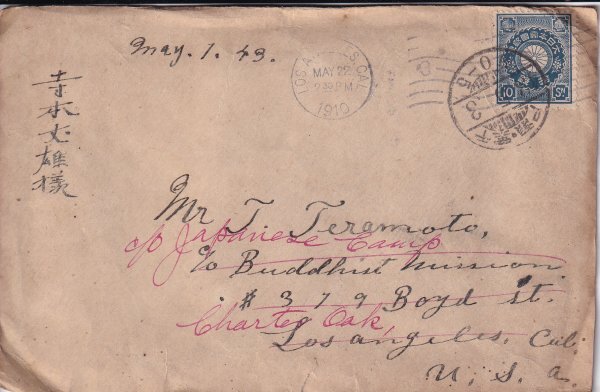 May. 1. 43.
LOS ANGELES, CAL.
MAY 22
2 30 PM
1910
大日本帝國郵便
10 Sn.
寺本丈雄様
Mr T. Teramoto,
c/o Japanese Camp
c/o Buddhist mission
# 379 Boyd st.
Charter Oak,
Los angeles, Cal.
U. S. a.